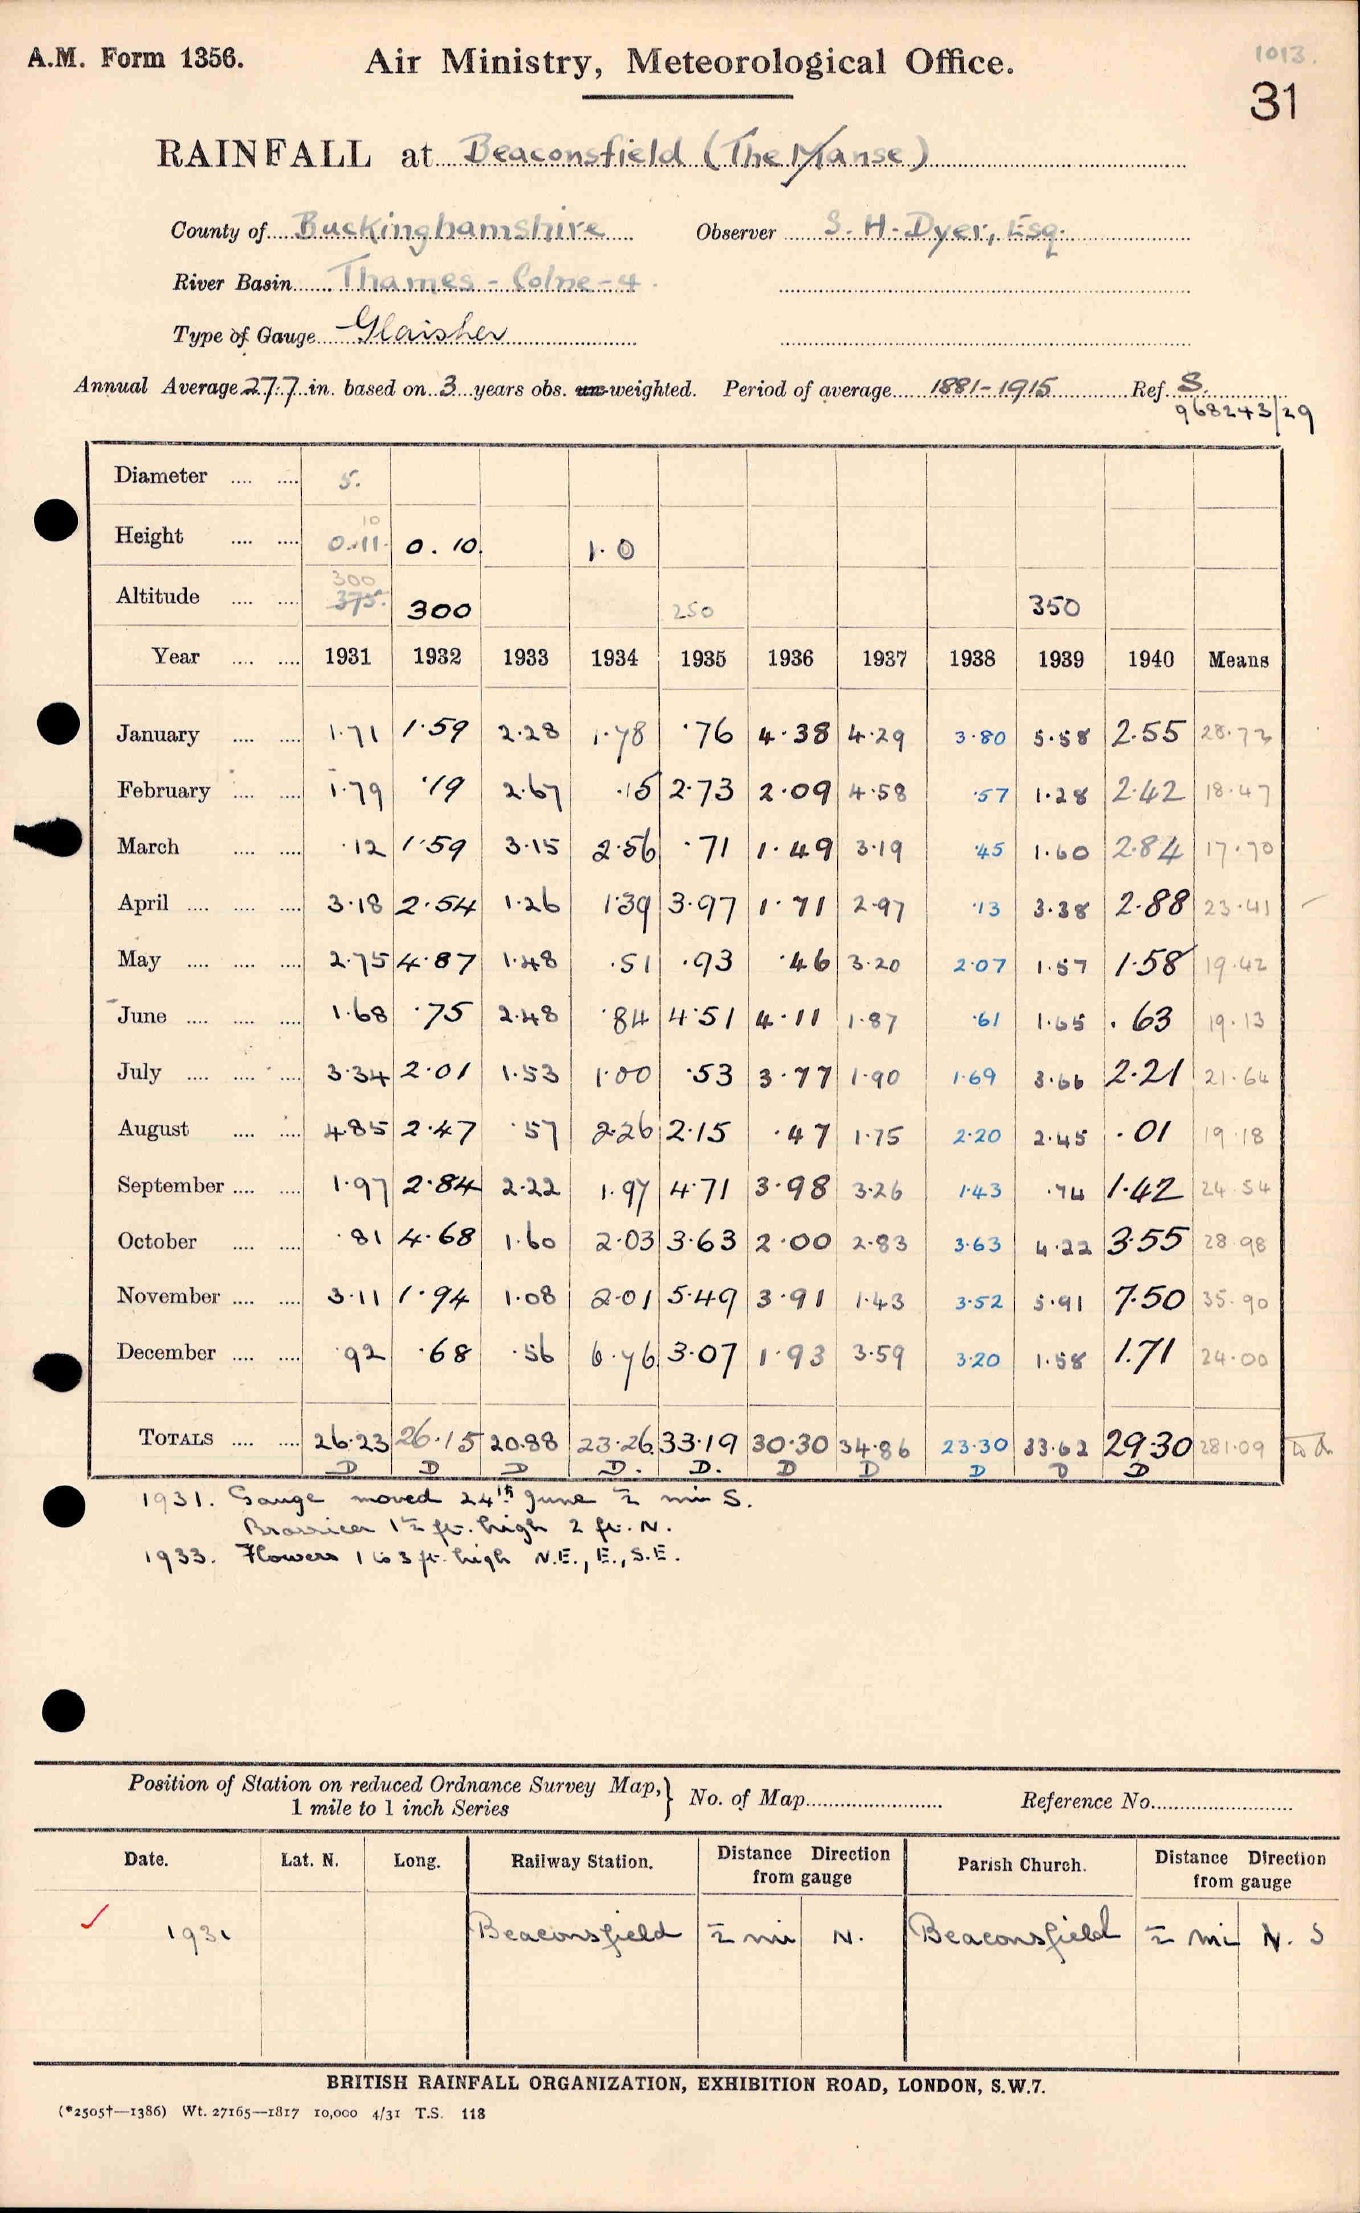 A.M. Form 1356.
Air Ministry, Meteorological Office.
1013.
31
RAINFALL at Beaconsfield (The Manse)
County of Buckinghamshire Observer S. H. Dyer, Esq.
River Basin Thames - Colne - 4.
Type of Gauge Glaisher
Annual Average 27.7 in. based on 3 years obs. un-weighted. Period of average 1881-1915 Ref. S.
968243/29
Diameter 5.
Height 0.11. 10 0.10. 1.0
Altitude 375. 300 300 250 350
Year 1931 1932 1933 1934 1935 1936 1937 1938 1939 1940 Means
January 1.71 1.59 2.28 1.78 .76 4.38 4.29 3.80 5.58 2.55 28.72
February 1.79 .19 2.67 .15 2.73 2.09 4.58 .57 1.28 2.42 18.47
March .12 1.59 3.15 2.56 .71 1.49 3.19 .45 1.60 2.84 17.70
April 3.18 2.54 1.26 1.39 3.97 1.71 2.97 .13 3.38 2.88 23.41
May 2.75 4.87 1.48 .51 .93 .46 3.20 2.07 1.57 1.58 19.42
June 1.68 .75 2.48 .84 4.51 4.11 1.87 .61 1.65 .63 19.13
July 3.34 2.01 1.53 1.00 .53 3.77 1.90 1.69 3.66 2.21 21.64
August 4.85 2.47 .57 2.26 2.15 .47 1.75 2.20 2.45 .01 19.18
September 1.97 2.84 2.22 1.97 4.71 3.98 3.26 1.43 .74 1.42 24.54
October .81 4.68 1.60 2.03 3.63 2.00 2.83 3.63 4.22 3.55 28.98
November 3.11 1.94 1.08 2.01 5.49 3.91 1.43 3.52 5.91 7.50 35.90
December .92 .68 .56 6.76 3.07 1.93 3.59 3.20 1.58 1.71 24.00
TOTALS 26.23 26.15 20.88 23.26 33.19 30.30 34.86 23.30 33.62 29.30 281.09
D D D D. D. D D D D D
1931. Gauge moved 24th June ½ mi S.
Barrier 1½ ft. high 2 ft. N.
1933. Flowers 1 to 3 ft. high N.E., E., S.E.
Position of Station on reduced Ordnance Survey Map, 1 mile to 1 inch Series } No. of Map Reference No.
Date. Lat. N. Long. Railway Station. Distance Direction from gauge Parish Church. Distance Direction from gauge
1931 Beaconsfield ½ mi N. Beaconsfield ½ mi N. S
BRITISH RAINFALL ORGANIZATION, EXHIBITION ROAD, LONDON, S.W.7.
(*2505†—1386) Wt. 27165—1817 10,000 4/31 T.S. 118